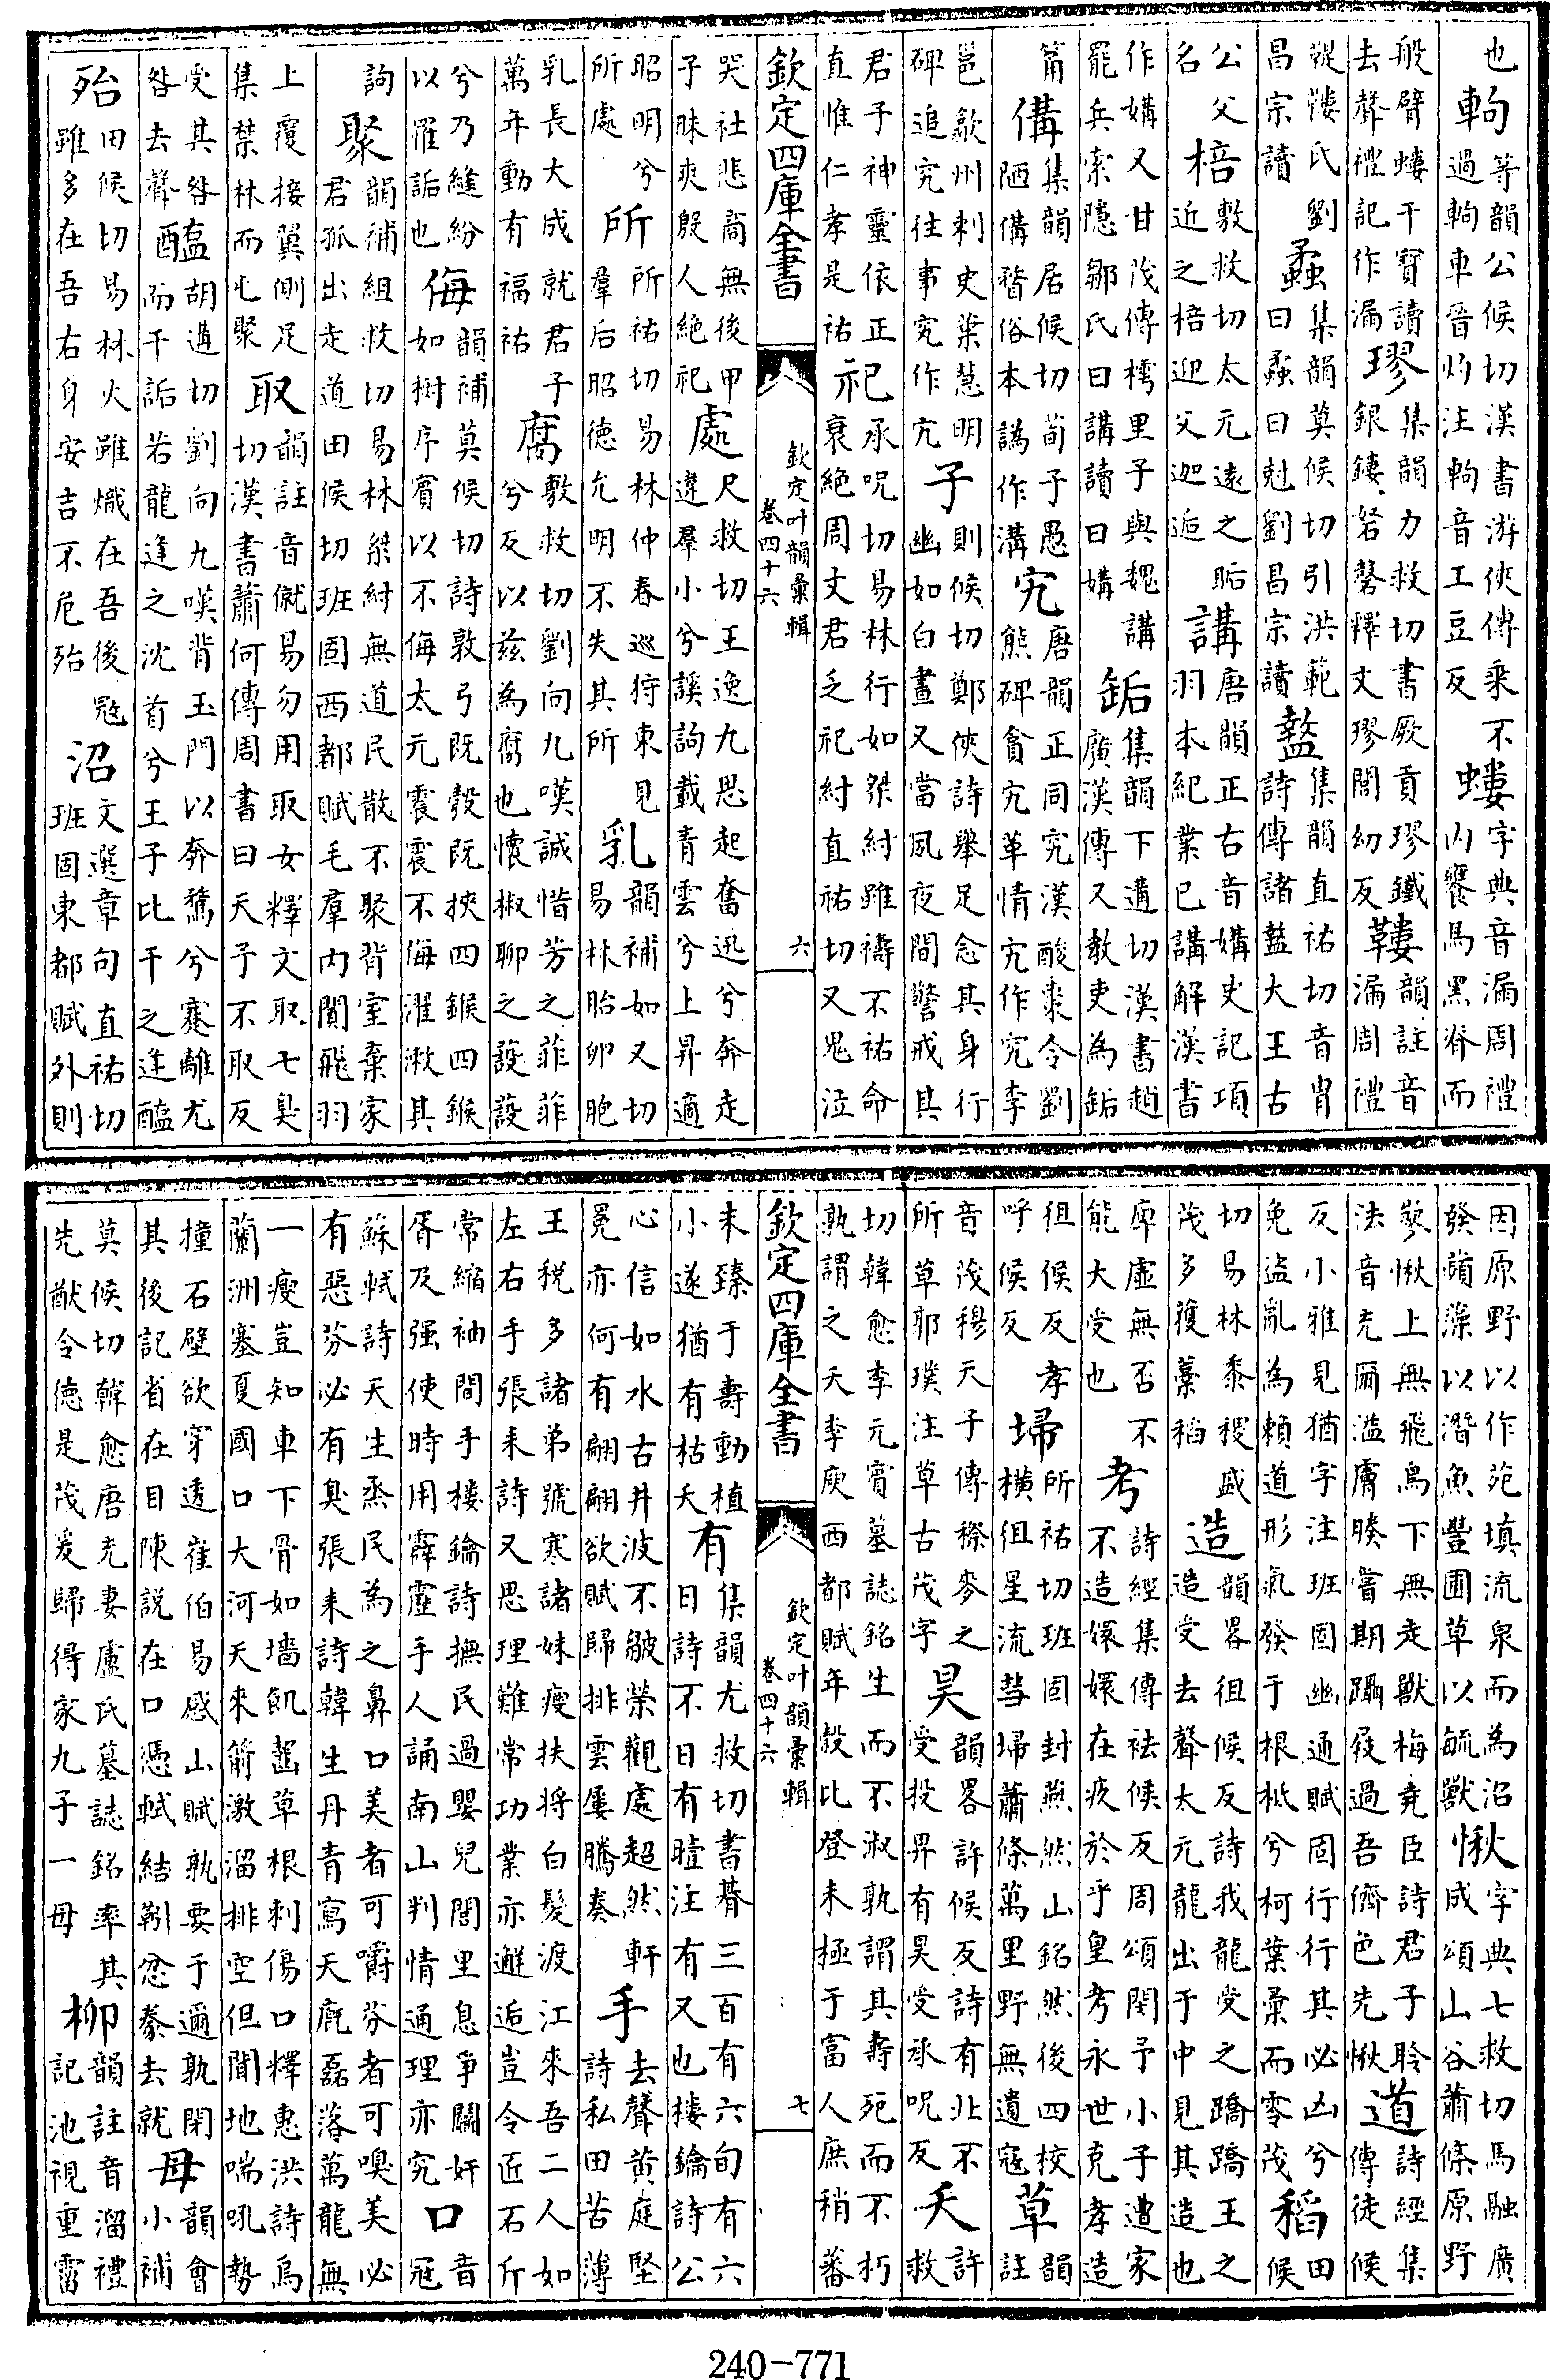 也軥等韻公候切漢書游俠傳乘不過軥車晉灼注軥音工豆反螻字典音漏周禮内饔馬黑脊而
般臂螻干寶讀去聲禮記作漏璆集韻力救切書厥貢璆鐵銀鏤砮磬釋文璆閭幼反鞻韻註音漏周禮
鞮鞻氏劉昌宗讀蟊集韻莫候切引洪範曰蟊曰尅劉昌宗讀盩集韻直祐切音胄詩傳諸盩大王古
公父名棓敷救切太元遠之近之棓迎父迦逅講唐韻正右音媾史記項羽本紀業已講解漢書
作媾又甘茂傳樗里子與魏講罷兵索隱鄒氏曰講讀曰媾缿集韻下遘切漢書趙廣漢傳又教吏為缿
筩傋集韻居候切荀子愚陋傋瞀俗本譌作溝究唐韻正同究漢酸棗令劉熊碑貪宄革情宄作究李
邕歙州刺史葉慧明碑追究往事究作宄子則候切鄭俠詩舉足念其身行幽如白晝又當夙夜間警戒其
君子神靈依正直惟仁孝是祐祀承呪切易林行如桀紂雖禱不祐命衰絶周文君乏祀紂直祐切又鬼泣
欽定四庫全書 欽定叶韻彚輯 卷四十六 六
哭社悲商無後甲子昧爽殷人絶祀處尺救切王逸九思起奮迅兮奔走違羣小兮謑詢載青雲兮上昇適
昭明兮所處所所祐切易林仲春巡狩東見羣后昭德允明不失其所乳韻補如又切易林胎卵胞
乳長大成就君子萬年動有福祐腐敷救切劉向九嘆誠惜芳之菲菲兮反以茲為腐也懷椒聊之蔎蔎
兮乃縫紛以罹詬也侮韻補莫候切詩敦弓既彀既挾四鍭四鍭如樹序賓以不侮太元震震不侮濯漱其
詢聚韻補徂救切易林桀紂無道民散不聚背室棄家君孤出走道田候切班固西都賦毛羣内闐飛羽
上覆接翼側足集禁林而屯聚取韻註音僦易勿用取女釋文取七臭切漢書蕭何傳周書曰天子不取反
受其咎咎去聲醢胡遘切劉向九嘆背玉門以奔騖兮蹇離尤而干詬若龍逢之沈首兮王子比干之逢醢
殆田候切易林火雖熾在吾後冦雖多在吾右身安吉不危殆沼文選章句直祐切班固東都賦外則
因原野以作苑填流泉而為沼發蘋藻以潛魚豐圃草以毓獸愀字典七救切馬融廣成頌山谷蕭條原野
嵺愀上無飛鳥下無走獸梅堯臣詩君子聆法音充爾溢膚腠嘗期躡屐過吾儕色先愀道詩經集傳徒候
反小雅見猶字注班固幽通賦固行行其必凶兮免盜亂為賴道形氣發于根柢兮柯葉彚而零茂稻田候
切易林黍稷盛茂多獲藁稻造韻畧徂候反詩我龍受之蹻蹻王之造受去聲太元龍出于中見其造也
庳虛無否不能大受也考詩經集傳袪候反周頌閔予小子遭家不造嬛嬛在疚於乎皇考永世克孝造
徂候反孝呼候反埽所祐切班固封燕然山銘然後四校橫徂星流彗埽蕭條萬里野無遺寇草韻註
音茂穆天子傳穄麥之所草郭璞注草古茂字昊韻畧許候反詩有北不受投畀有昊受承呪反夭許救
切韓愈李元賓墓誌銘生而不淑孰謂其壽死而不朽孰謂之夭李庾西都賦年穀比登未極于富人庶稍蕃
欽定四庫全書 欽定叶韻彚輯 卷四十六 七
未臻于壽動植小遂猶有枯夭有集韻尤救切書朞三百有六旬有六日詩不日有曀注有又也樓鑰詩公
心信如水古井波不皺榮觀處超然軒冕亦何有翩翩欲賦歸排雲屢騰奏手去聲黄庭堅詩私田苦薄
王税多諸弟號寒諸妹瘦扶將白髮渡江來吾二人如左右手張耒詩又思理難常功業亦邂逅豈令匠石斤
常縮袖間手樓鑰詩撫民過嬰兒閭里息爭鬭奸胥及强使時用霹靂手人誦南山判情通理亦究口音冦
蘇軾詩天生烝民為之鼻口美者可嚼芬者可嗅美必有惡芬必有臭張耒詩韓生丹青寫天廐磊落萬龍無
一瘦豈知車下骨如墻飢齧草根刺傷口釋惠洪詩烏蘭洲塞夏國口大河天來箭激溜排空但聞地喘吼勢
撞石壁欲穿透崔伯易感山賦孰要于邇孰閉其後記省在目陳説在口憑軾結靷忽去就母韻會小補
莫候切韓愈唐充妻盧氏墓誌銘率其先猷令徳是茂爰歸得家九子一母柳韻註音溜禮記池視重霤
240-771